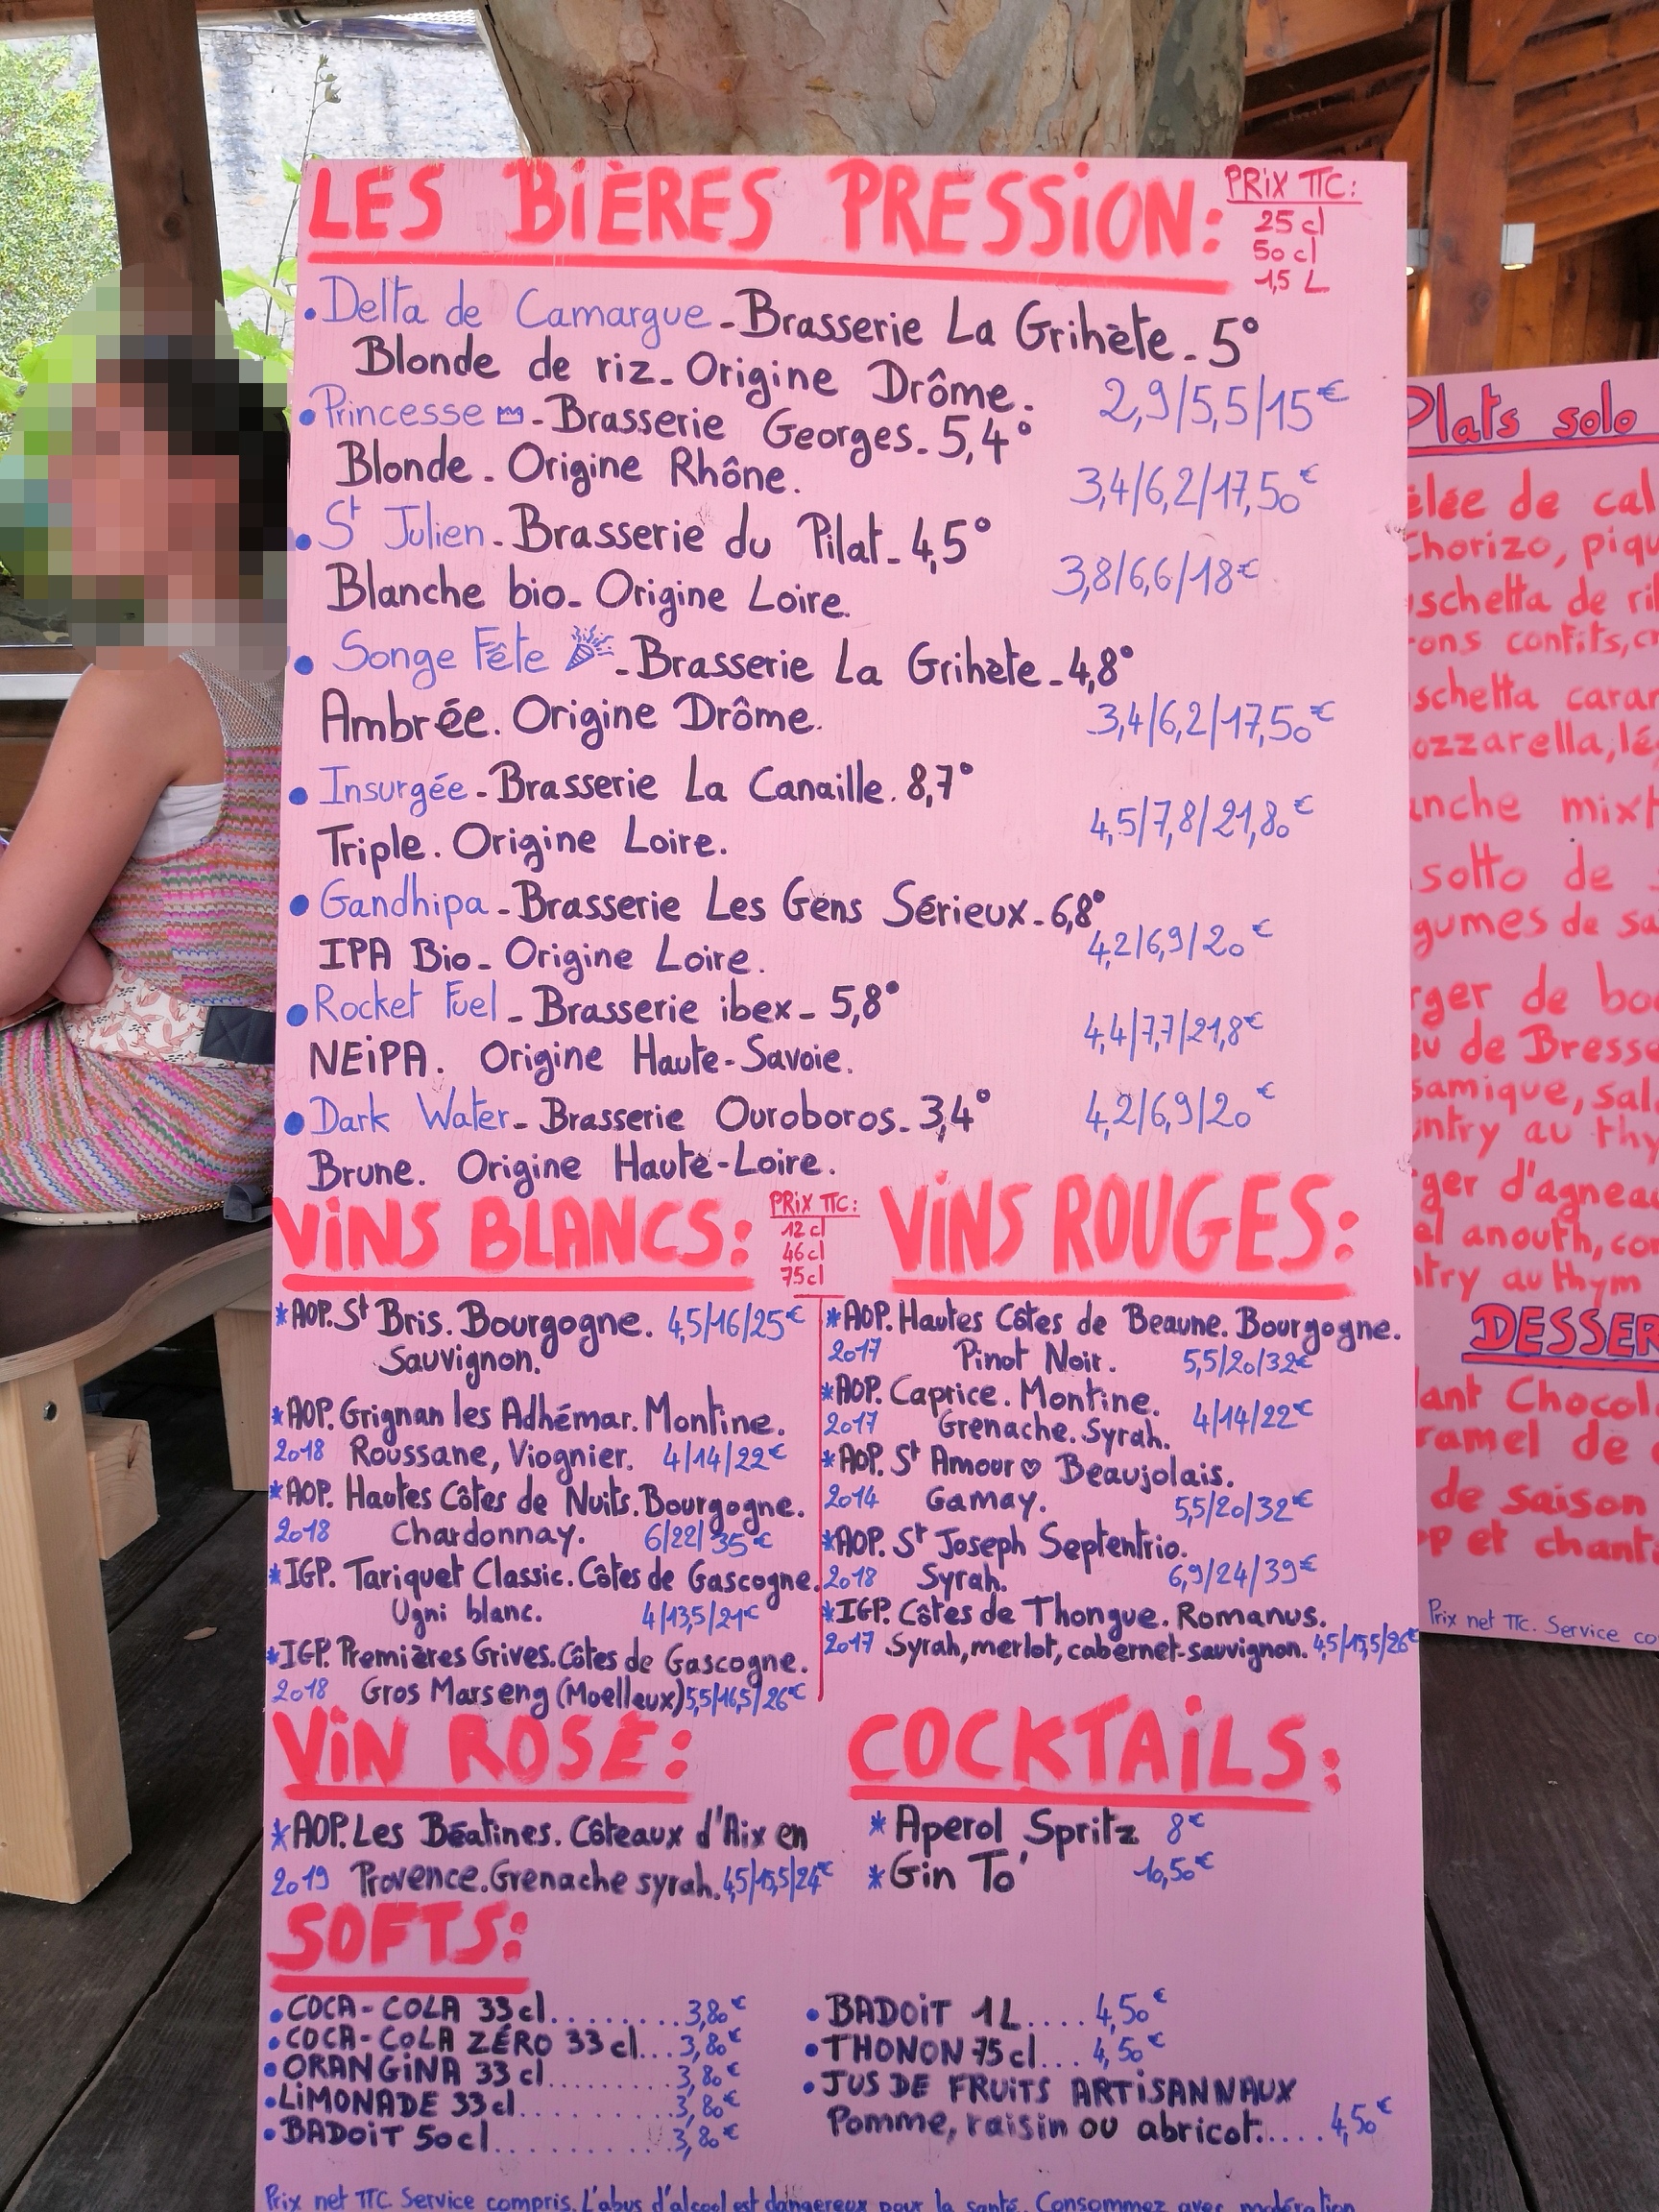 LES BIÈRES PRESSION:
PRIX TTC:
25 cl
50 cl
1,5 L
•Delta de Camargue - Brasserie La Grihète - 5°
Blonde de riz - Origine Drôme.
2,9/5,5/15€
•Princesse - Brasserie Georges - 5,4°
Blonde - Origine Rhône.
3,4/6,2/17,50€
•St Julien - Brasserie du Pilat - 4,5°
Blanche bio - Origine Loire.
3,8/6,6/18€
•Songe Fête - Brasserie La Grihète - 4,8°
Ambrée. Origine Drôme.
3,4/6,2/17,50€
•Insurgée - Brasserie La Canaille. 8,7°
Triple. Origine Loire.
4,5/7,8/21,80€
•Gandhipa - Brasserie Les Gens Sérieux - 6,8°
IPA Bio - Origine Loire.
4,2/6,9/20€
•Rocket Fuel - Brasserie ibex - 5,8°
NEIPA. Origine Haute-Savoie.
4,4/7,7/21,8€
•Dark Water - Brasserie Ouroboros - 3,4°
4,2/6,9/20€
Brune. Origine Haute-Loire.
VINS BLANCS:
PRIX TTC:
12 cl
46 cl
75 cl
*AOP. St Bris. Bourgogne. 4,5/16/25€
Sauvignon.
*AOP. Grignan les Adhémar. Montine.
2018 Roussane, Viognier. 4/14/22€
*AOP. Hautes Côtes de Nuits. Bourgogne.
2018 Chardonnay. 6/22/35€
*IGP. Tariquet Classic. Côtes de Gascogne.
Ugni blanc. 4/13,5/21€
*IGP. Premières Grives. Côtes de Gascogne.
2018 Gros Marseng (Moelleux) 5,5/16,5/26€
VINS ROUGES:
*AOP. Hautes Côtes de Beaune. Bourgogne.
2017 Pinot Noir. 5,5/20/32€
*AOP. Caprice. Montine.
2017 Grenache. Syrah. 4/14/22€
*AOP. St Amour ♡ Beaujolais.
2014 Gamay. 5,5/20/32€
*AOP. St Joseph Septentrio.
2018 Syrah. 6,9/24/39€
*IGP. Côtes de Thongue. Romanus.
2017 Syrah, merlot, cabernet-sauvignon. 4,5/15,5/26€
VIN ROSÉ:
*AOP. Les Béatines. Côteaux d'Aix en
2019 Provence. Grenache syrah. 4,5/15,5/24€
COCKTAILS:
*Aperol Spritz 8€
*Gin To' 10,50€
SOFTS:
•COCA-COLA 33cl.........3,80€
•COCA-COLA ZÉRO 33cl...3,80€
•ORANGINA 33cl.........3,80€
•LIMONADE 33cl.........3,80€
•BADOIT 50cl...........3,80€
•BADOIT 1L....4,50€
•THONON 75cl...4,50€
•JUS DE FRUITS ARTISANNAUX
Pomme, raisin ou abricot.....4,50€
Prix net TTC. Service compris. L'abus d'alcool est dangereux pour la santé. Consommez avec modération
Plats solo
élée de cal
chorizo, piqu
schetta de ril
rons confits, cr
schetta caram
ozzarella, lé
anche mixt
sotto de
gumes de sa
rger de bo
eu de Bresse
samique, sal
untry au thy
ger d'agneau
el anouth, con
ntry au thym
DESSER
lant Chocol
ramel de
de saison
op et chanti
Prix net TTC. Service co